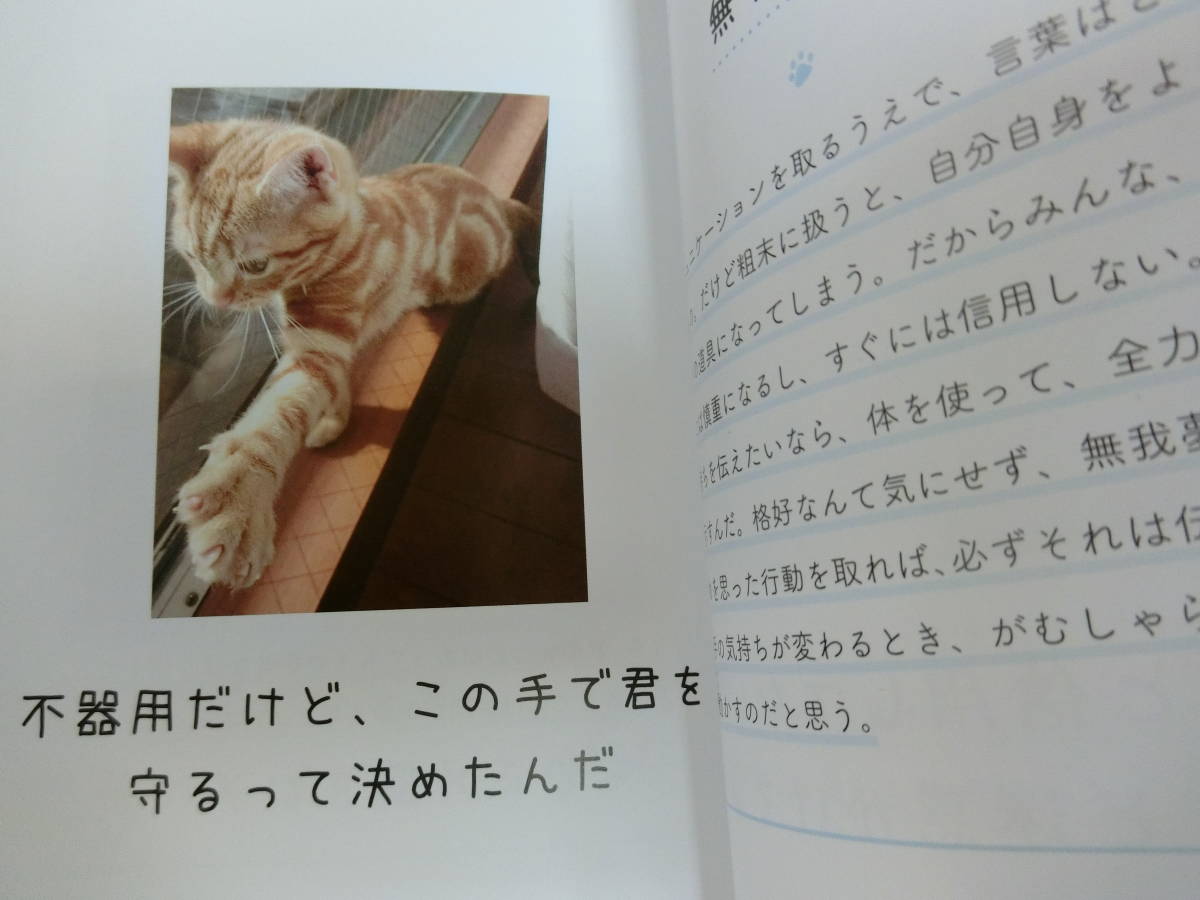 不器用だけど、この手で君を
守るって決めたんだ
無
ニケーションを取るうえで、言葉はと
だけど粗末に扱うと、自分自身をよ
の道具になってしまう。だからみんな、
慎重になるし、すぐには信用しない。
を伝えたいなら、体を使って、全力
すんだ。格好なんて気にせず、無我夢
を思った行動を取れば、必ずそれは伝
手の気持ちが変わるとき、がむしゃら
かすのだと思う。